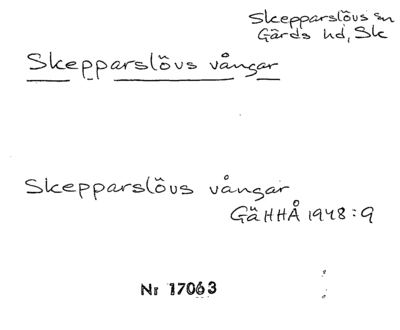 Skepparslövs sn
Gärds hd, Sk
Skepparslövs vångar
Skepparslövs vångar
GäHHÅ 1948:9
Nr 17063